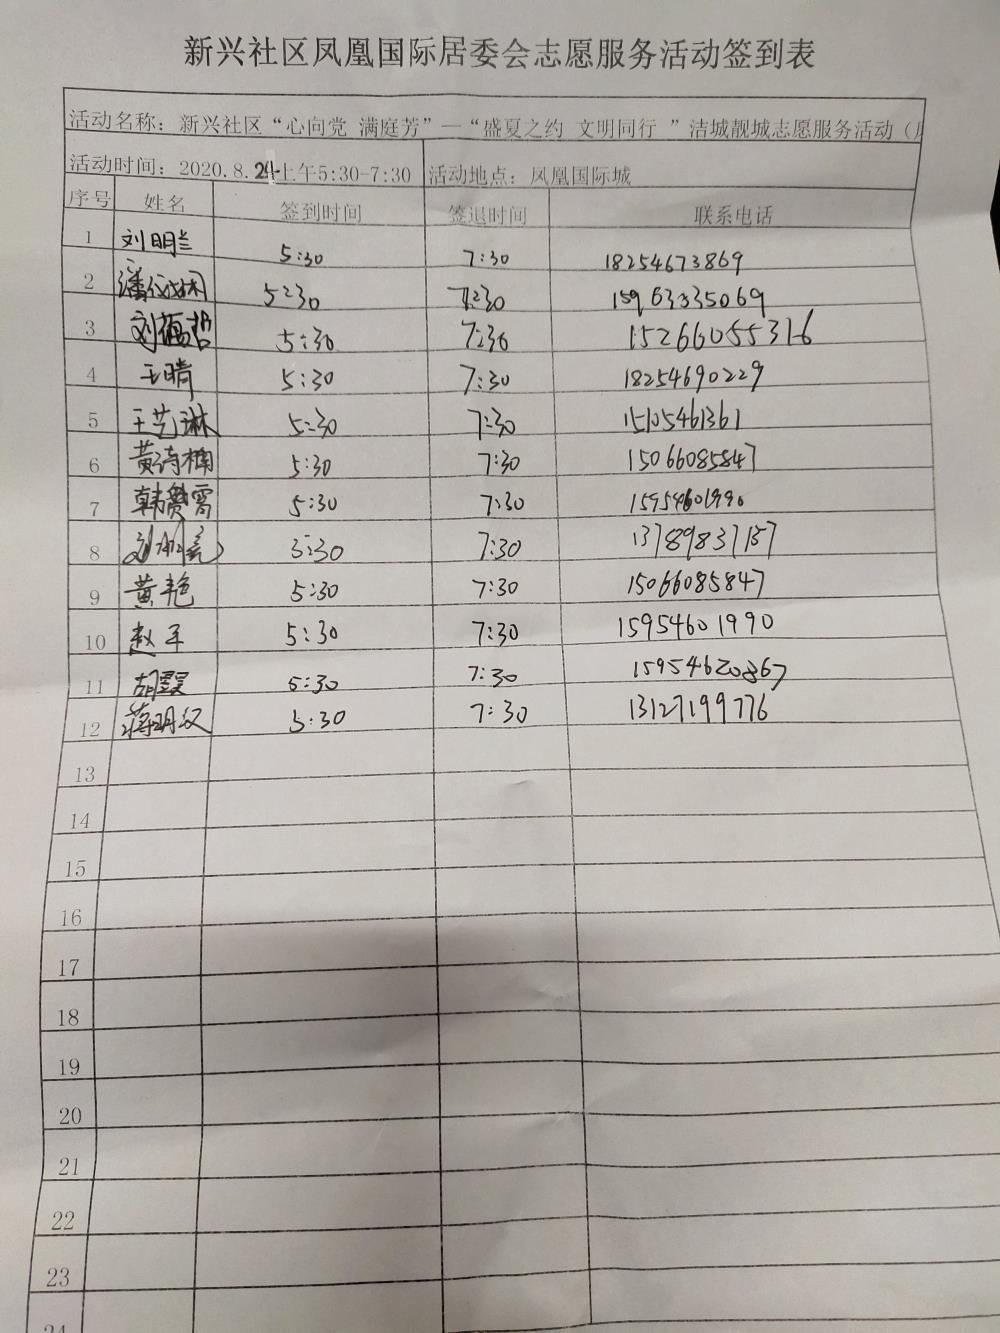 新兴社区凤凰国际居委会志愿服务活动签到表
活动名称：新兴社区“心向党 满庭芳”—“盛夏之约 文明同行 ”洁城靓城志愿服务活动（
活动时间：2020.8.24上午5:30-7:30 活动地点：凤凰国际城
序号 姓名 签到时间 签退时间 联系电话
1 刘明兰 5:30 7:30 18254673869
2 潘 5:30 7:30 15963335069
3 刘 5:30 7:30 15266055316
4 王晴 5:30 7:30 18254690229
5 王艺琳 5:30 7:30 15105461361
6 黄诗楠 5:30 7:30 15066085847
7 韩 霄 5:30 7:30 15954601990
8 5:30 7:30 13789837157
9 黄艳 5:30 7:30 15066085847
10 赵军 5:30 7:30 15954601990
11 胡霞 5:30 7:30 15954620867
12 蒋明汉 5:30 7:30 13127199776
13
14
15
16
17
18
19
20
21
22
23
24